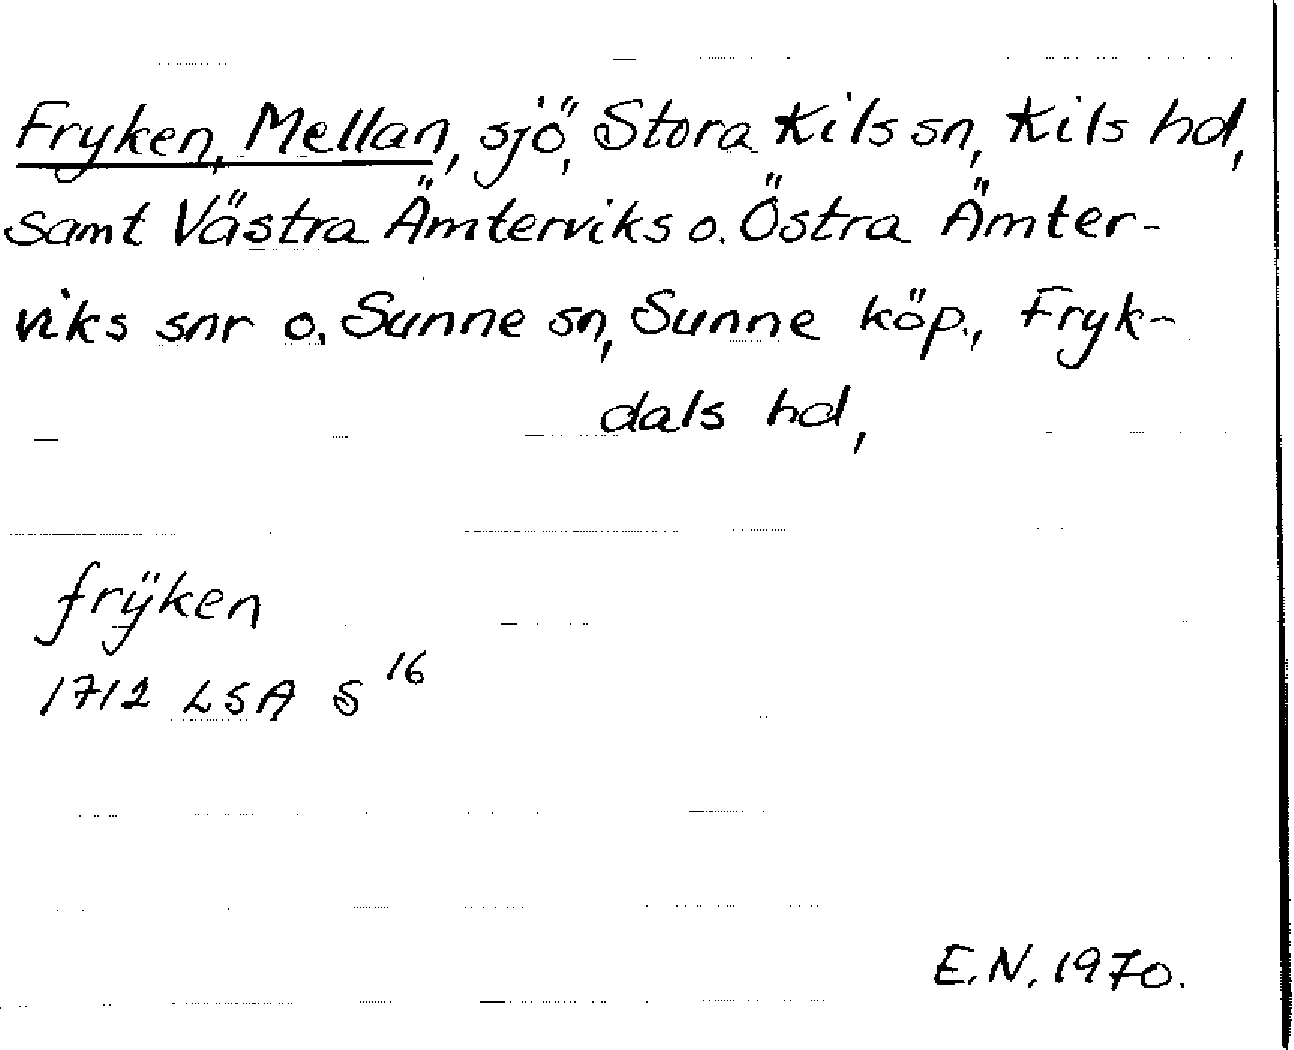 Fryken, Mellan, sjö, Stora Kils sn, Kils hd,
samt Västra Ämterviks o. Östra Ämter-
viks snr o. Sunne sn, Sunne köp., Fryk-
dals hd,
frÿken
1712 LSA S 16
E.N. 1970.